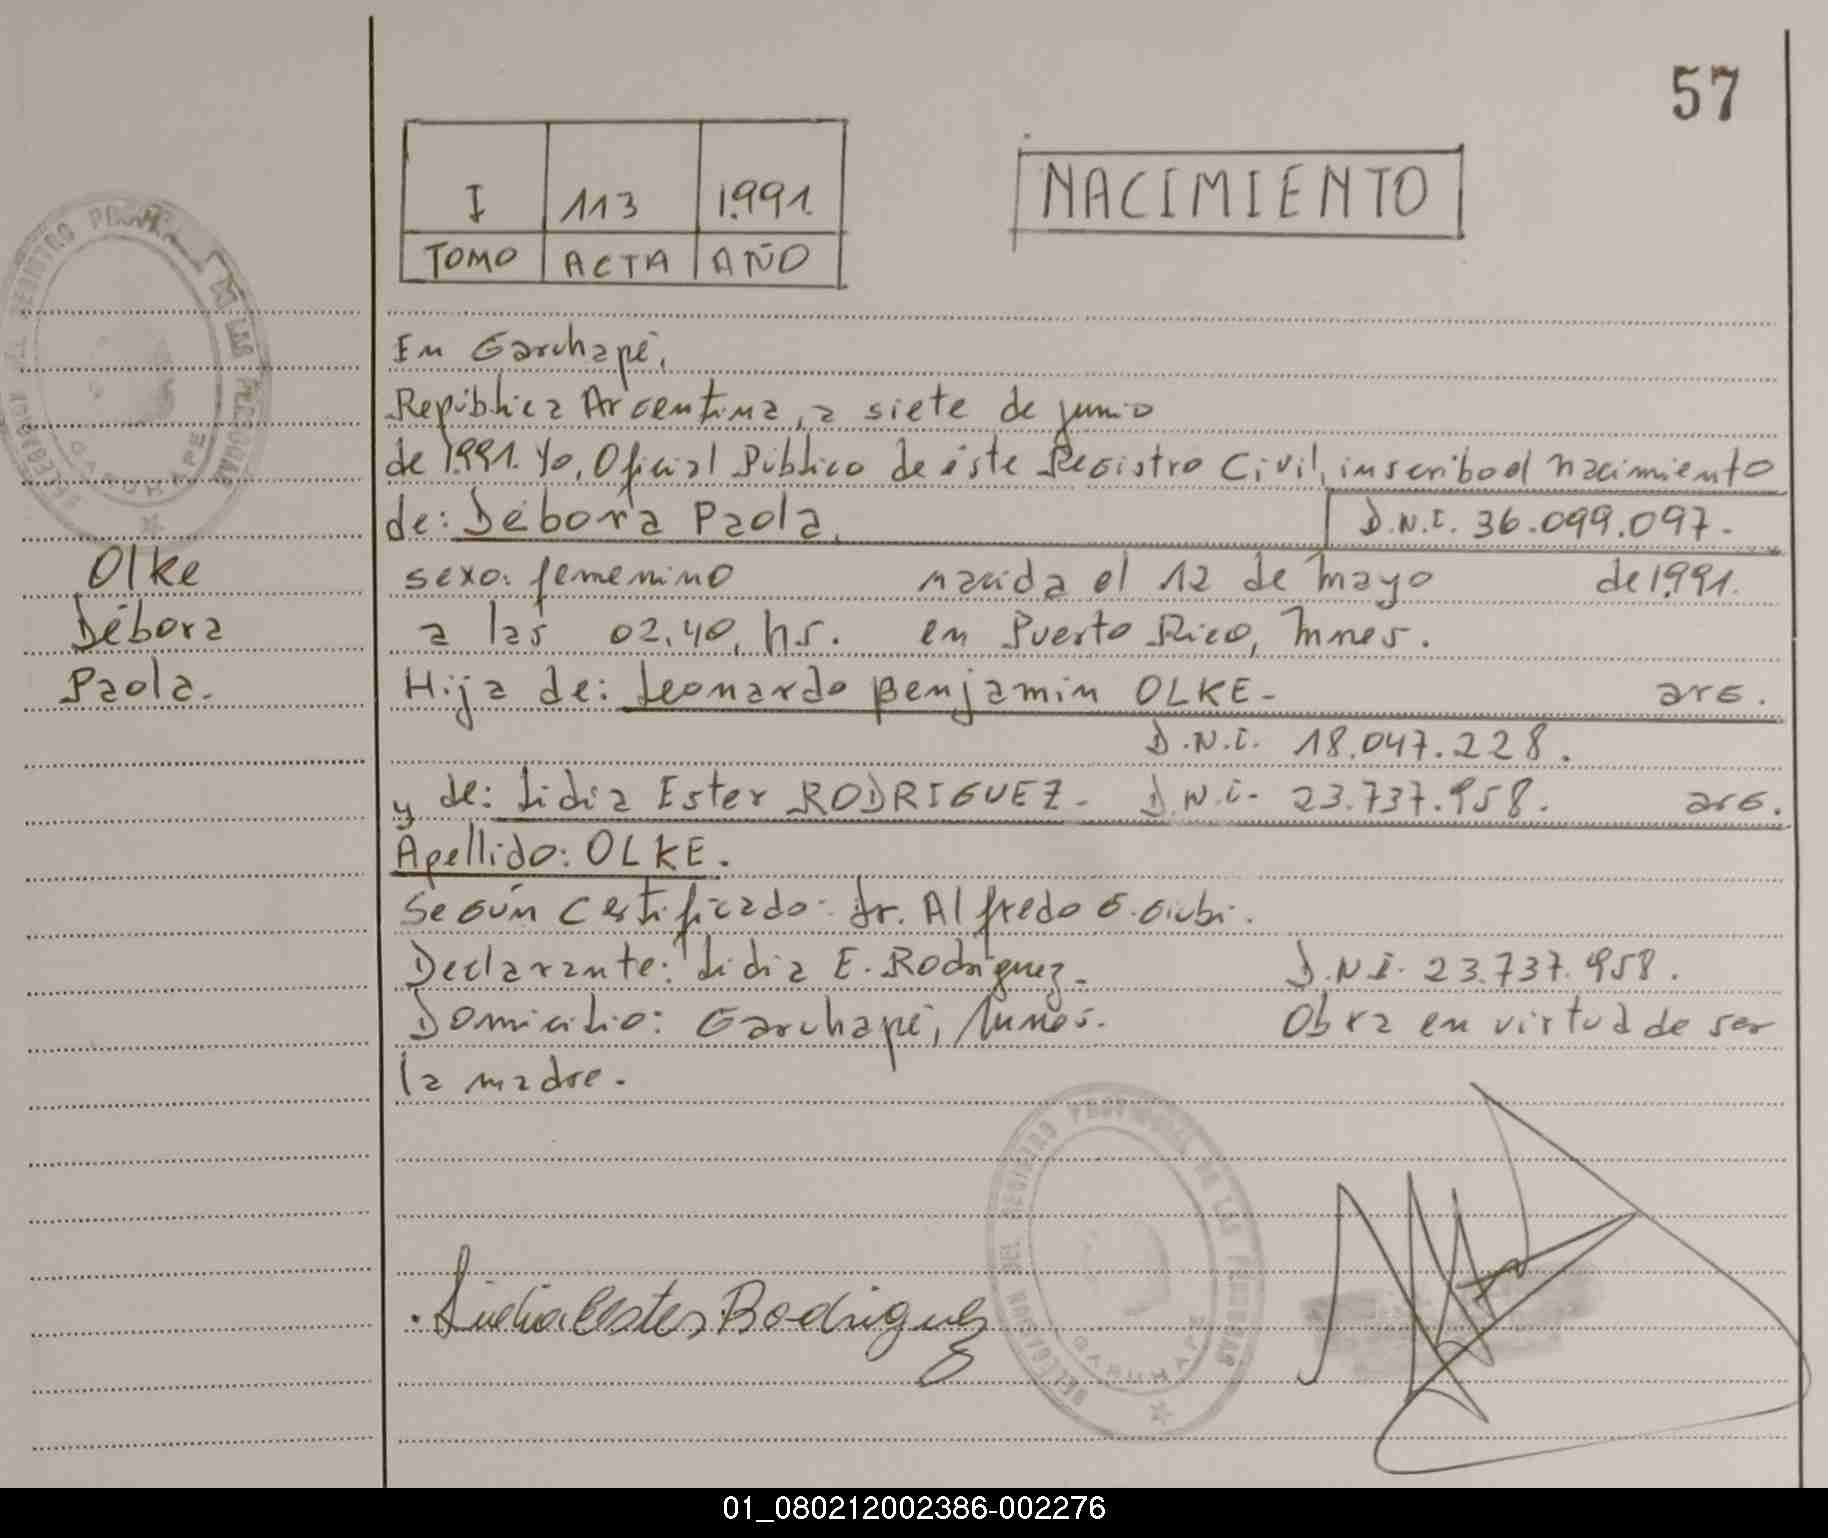 57
I 113 1.991.
TOMO ACTA AÑO
NACIMIENTO
En Garuhapé,
República Argentina, a siete de junio
de 1.991. Yo, Oficial Público de éste Registro Civil, inscribo el nacimiento
de: Débora Paola. D.N.I. 36.099.097.-
Olke
Débora
Paola.
sexo: femenino nacida el 12 de mayo de 1.991.
a las 02,40, hs. en Puerto Rico, Mnes.
Hija de: Leonardo Benjamin OLKE- arg.
D.N.I. 18.047.228.
y de: Lidia Ester RODRIGUEZ- D.N.I- 23.737.958. arg.
Apellido: OLKE.
Según Certificado: Dr. Alfredo G.
Declarante: Lidia E. Rodríguez- D.N.I. 23.737.958.
Domicilio: Garuhapé, Mnes. Obra en virtud de ser
la madre.
Lidia Ester Rodriguez
DELEGACION DEL REGISTRO PROVINCIAL DE LAS PERSONAS
GARUHAPE
01_080212002386-002276